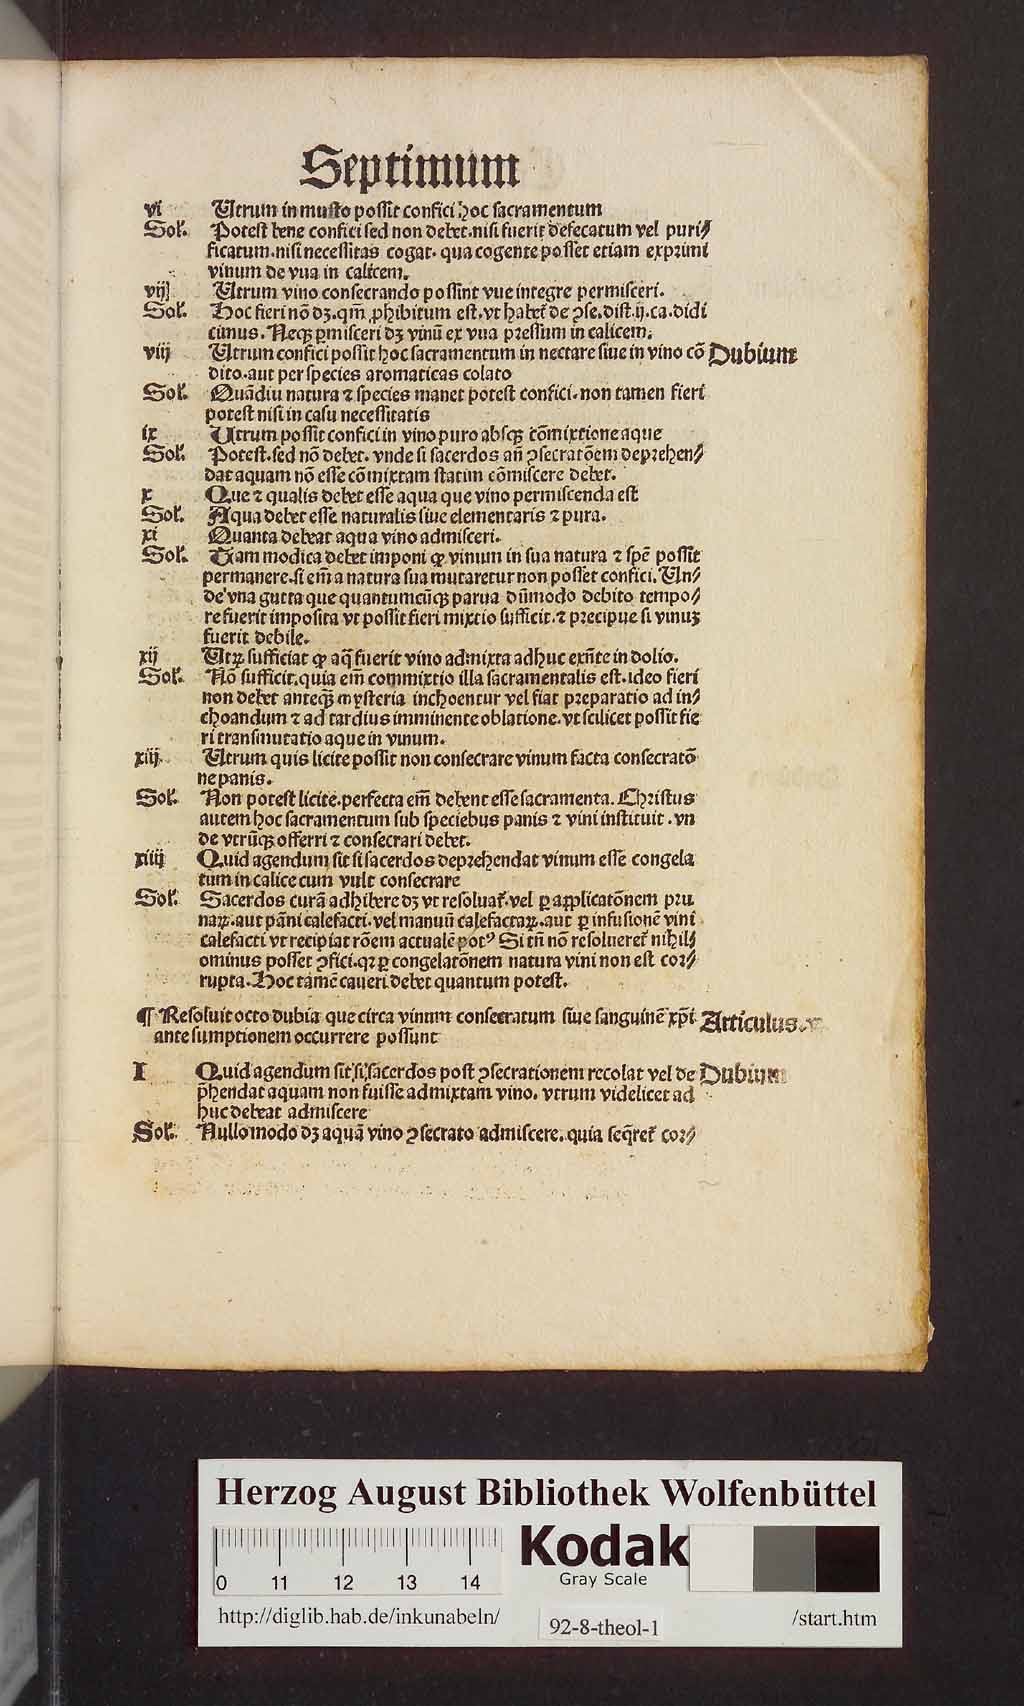 Septimum
vi Utrum in musto possit confici hoc sacramentum
Sol'. Potest bene confici sed non debet. nisi fuerit defecatum vel puri⸗
ficatum. nisi necessitas cogat. qua cogente posset etiam exprimi
vinum de vua in calicem.
vij Utrum vino consecrando possint vue integre permisceri.
Sol'. Hoc fieri nõ dꝫ. qm̃ ꝓhibitum est. vt habet̃ de ꝯse. dist. ij. ca. didi
cimus. Neqꝫ ꝑmisceri dꝫ vinũ ex vua pressum in calicem.
viij Utrum confici possit hoc sacramentum in nectare siue in vino cõ Dubium
dito. aut per species aromaticas colato
Sol'. Quãdiu natura ⁊ species manet potest confici. non tamen fieri
potest nisi in casu necessitatis
ix Utrum possit confici in vino puro absqꝫ cõmixtione aque
Sol'. Potest. sed nõ debet. vnde si sacerdos añ ꝯsecratõem deprehen⸗
dat aquam nõ esse cõmixtam statim cõmiscere debet.
x Que ⁊ qualis debet esse aqua que vino permiscenda est
Sol'. Aqua debet esse naturalis siue elementaris ⁊ pura.
xi Quanta debeat aqua vino admisceri.
Sol'. Tam modica debet imponi ꝙ vinum in sua natura ⁊ spẽ possit
permanere. si em̃ a natura sua mutaretur non posset confici. Un⸗
de vna gutta que quantumcũqꝫ parua dũmodo debito tempo⸗
re fuerit imposita vt possit fieri mixtio sufficit. ⁊ precipue si vinuꝫ
fuerit debile.
xij Utꝝ sufficiat ꝙ aq̃ fuerit vino admixta adhuc exñte in dolio.
Sol'. Nõ sufficit. quia em̃ commixtio illa sacramentalis est. ideo fieri
non debet anteqꝫ mysteria inchoentur vel fiat preparatio ad in⸗
choandum ⁊ ad tardius imminente oblatione. vt scilicet possit fie
ri transmutatio aque in vinum.
xiij Utrum quis licite possit non consecrare vinum facta consecratõ
ne panis.
Sol'. Non potest licite. perfecta em̃ debent esse sacramenta. Christus
autem hoc sacramentum sub speciebus panis ⁊ vini instituit. vn
de vtrũqꝫ offerri ⁊ consecrari debet.
xiiij Quid agendum sit si sacerdos deprehendat vinum esse congela
tum in calice cum vult consecrare
Sol'. Sacerdos curã adhibere dꝫ vt resoluat̃. vel ꝑ applicatõnem pru
naꝝ. aut pãni calefacti. vel manuũ calefactaꝝ. aut ꝑ infusionẽ vini
calefacti vt recipiat rõem actualẽ potꝰ Si tñ nõ resolueret̃ nihil⸗
ominus posset ꝯfici. qꝛ ꝑ congelatõnem natura vini non est cor⸗
rupta. Hoc tamẽ caueri debet quantum potest.
¶ Resoluit octo dubia que circa vinum consecratum siue sanguinẽ xp̃i Articulus. v
ante sumptionem occurrere possunt
I Quid agendum sit, si, sacerdos post ꝯsecrationem recolat vel de Dubium
p̃hendat aquam non fuisse admixtam vino. vtrum videlicet ad
huc debeat admiscere
Sol'. Nullo modo dꝫ aquã vino ꝯsecrato admiscere. quia seq̃ret̃ cor⸗
Herzog August Bibliothek Wolfenbüttel
0 11 12 13 14
Kodak
Gray Scale
http://diglib.hab.de/inkunabeln/ 92-8-theol-1 /start.htm